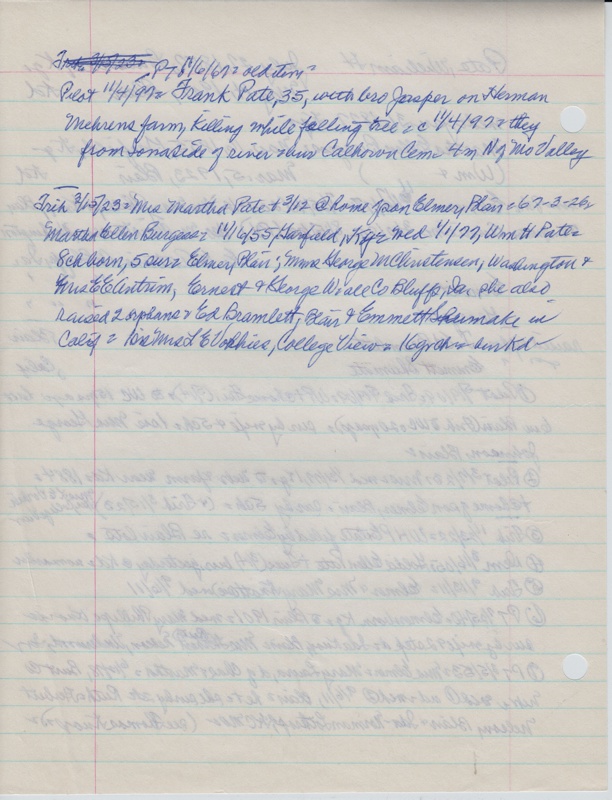 Trib 3/15/23= PT 8/6/67= old item=
Pilot 11/4/97= Frank Pate, 35, with bro Jasper on Herman
Mehrens farm, killing while felling tree = c 11/4/97 = they
from Iona side of river = bur Calhoun Cem 4m N of Mo Valley
Trib 3/15/23= Mrs Martha Pate + 3/12 @ home of son Elmer, Blair = 67-3-26,
Martha Ellen Burgess= 11/6/55, Garfield, Ky= wed 1/1/77, Wm H Pate=
8ch born, 5 sur= Elmer, Blair; Mrs George M Christensen, Washington +
Mrs E E Antrim, Ernest + George W all Co Bluffs, Ia. she also
raised 2 orphans = Ed Bramlett, Blair + Emmett Shumake in
Calif = sis Mrs L E Vorhies, College View = 16grch = bur Kd-